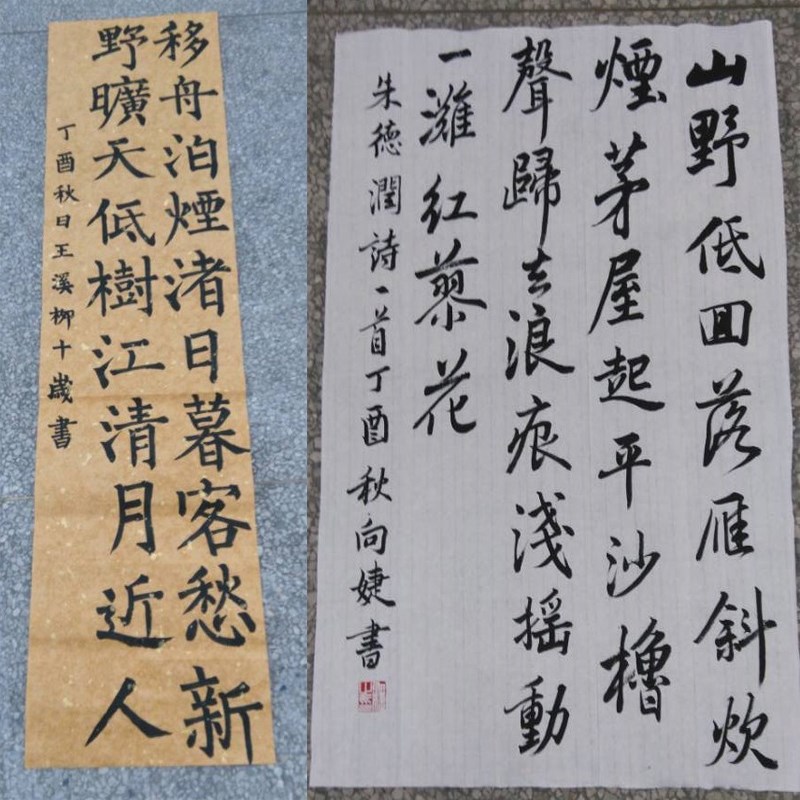 移舟泊煙渚日暮客愁新
野曠天低樹江清月近人
丁酉秋日王溪柳十歲書
山野低囬落雁斜炊
煙茅屋起平沙櫓
聲歸去浪痕淺搖動
一灘紅蓼花
朱德潤詩一首丁酉秋向婕書